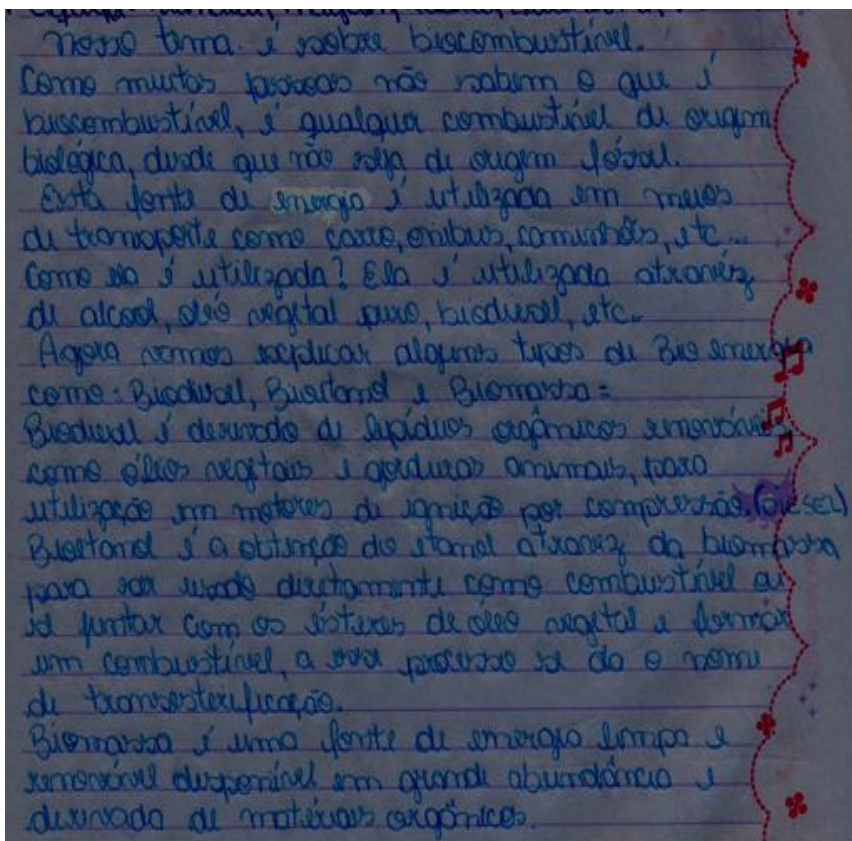 Nosso tema é sobre biocombustível.
Como muitas pessoas não sabem o que é
biocombustível, é qualquer combustível de origem
biológica, desde que não seja de origem fóssil.
Esta fonte de energia é utilizada em meios
de transporte como carro, onibus, caminhões, etc...
Como ela é utilizada? Ela é utilizada atravéz
de alcool, oléo vegetal puro, biodiesel, etc..
Agora vamos explicar alguns tipos de Bio energia
como: Biodiesel, Bioetanol e Biomassa:
Biodiesel é derivado de lipídios orgânicos renováveis
como óleos vegetais e gorduras animais, para
utilização em motores de ignição por compressão. (diesel)
Bioetanol é a obtenção do etanol atravéz da biomassa
para ser usado diretamente como combustível ou
se juntar com os ésteres de óleo vegetal e formar
um combustível, a esse processo se da o nome
de transesterificação.
Biomassa é uma fonte de energia limpa e
renovável disponível em grande abundância e
derivada de matérias orgânicos.